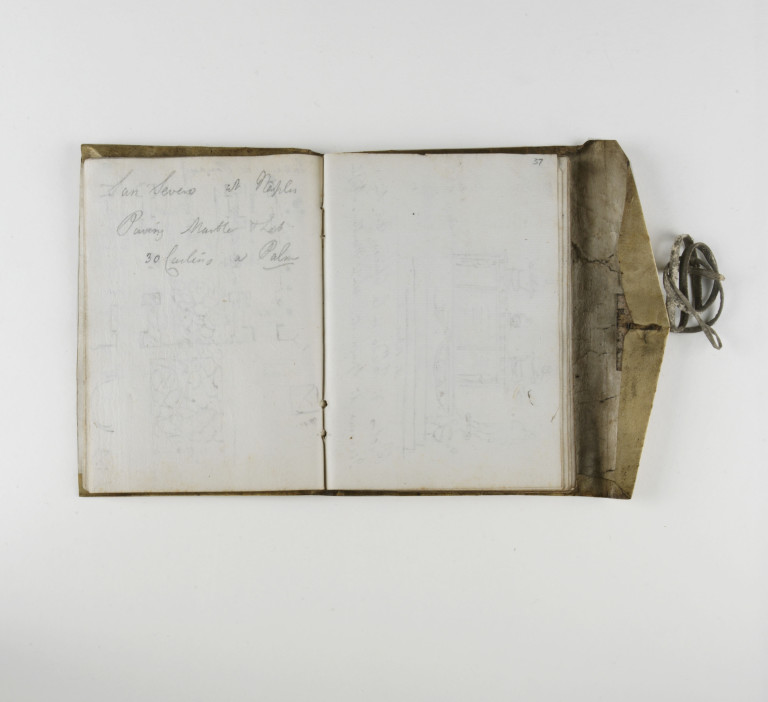 San Severo at Naples
Paving Marble &
30 Carlins a Palm
57